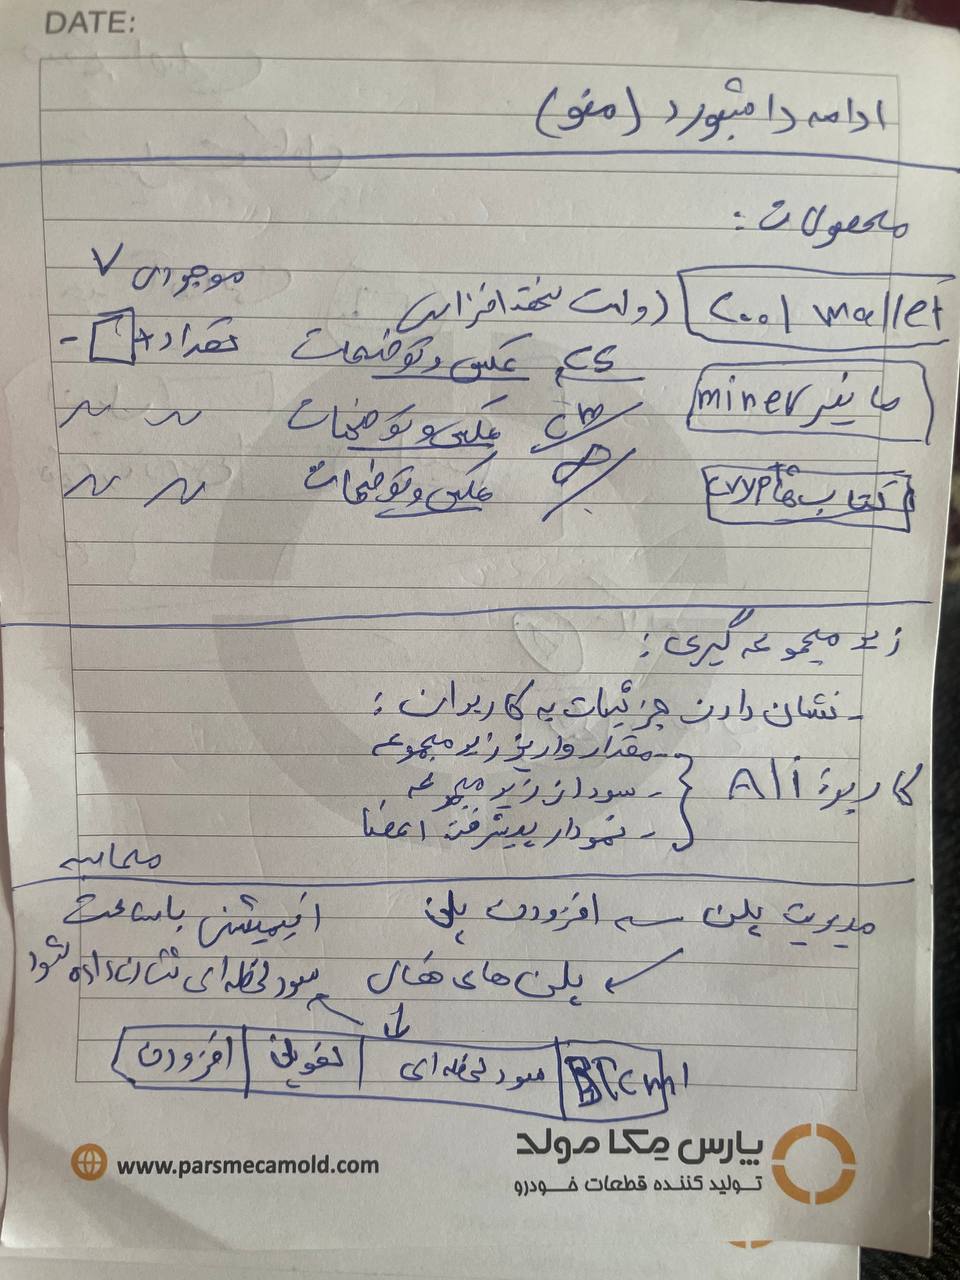 DATE:
ادامه داشبورد (منو)
محصولات:
موجودی ✓
Cool wallet (ولت سخت‌افزاری
CS عکس و توضیحات تعداد + -
ماینر miner CM عکس و توضیحات ~ ~
کتاب‌ها crypto عکس و توضیحات ~ ~
زیر مجموعه گیری:
- نشان دادن جزئیات به کاربران:
کاربر Ali
- مقدار واریز زیر مجموعه
- سود از زیر مجموعه
- نمودار پیشرفت اعضا
محاسبه
مدیریت پلن → افزودن پلن
پلن های فعال
انیمیشن با ساعت
سود لحظه‌ای نشان داده شود
BTCm1 سود لحظه‌ای تعویض افزودن
پارس مکا مولد
تولید کننده قطعات خودرو
www.parsmecamold.com